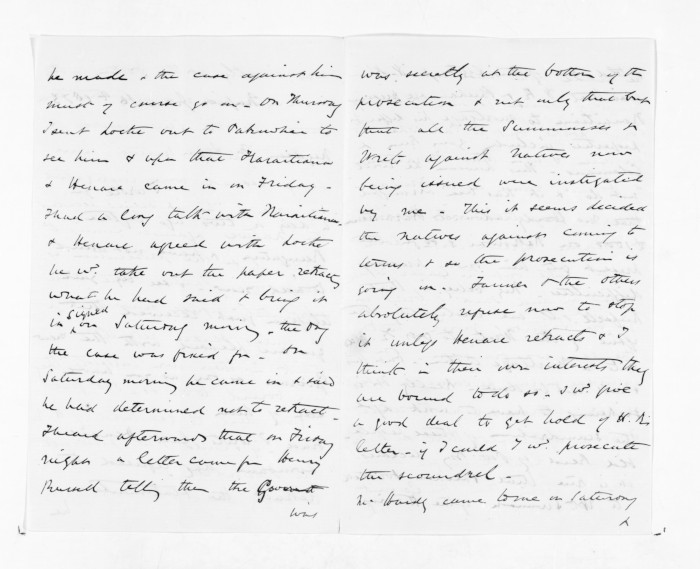 he made & the case against him
must of course go on - On Thursday
I sent Locke out to Pakowhai to
see him & upon that Karaitiana
& Henare came in on Friday -
I had a long talk with Karaitiana
& Henare agreed with Locke
he wd. take out the paper retracting
what he had said & bring it
in signed on Saturday morning, the day
the case was fixed for - On
Saturday morning he came in & said
he had determined not to retract -
I heard afterwards that on Friday
night a letter came from Henry
Russell telling them the Governmt
was
was secretly at the bottom of the
prosecution & not only that but
that all the Summonses &
Writs against Natives now
being issued were instigated
by me - This it seems decided
the Natives against coming to
terms & so the prosecution is
going on - Tanner & the others
absolutely refuse now to stop
it unless Henare retracts & I
think in their own interests they
are bound to do so - I wd. give
a good deal to get hold of H. R's
letter - if I could I wd. prosecute
the scoundrel
came to me on Saturday
&